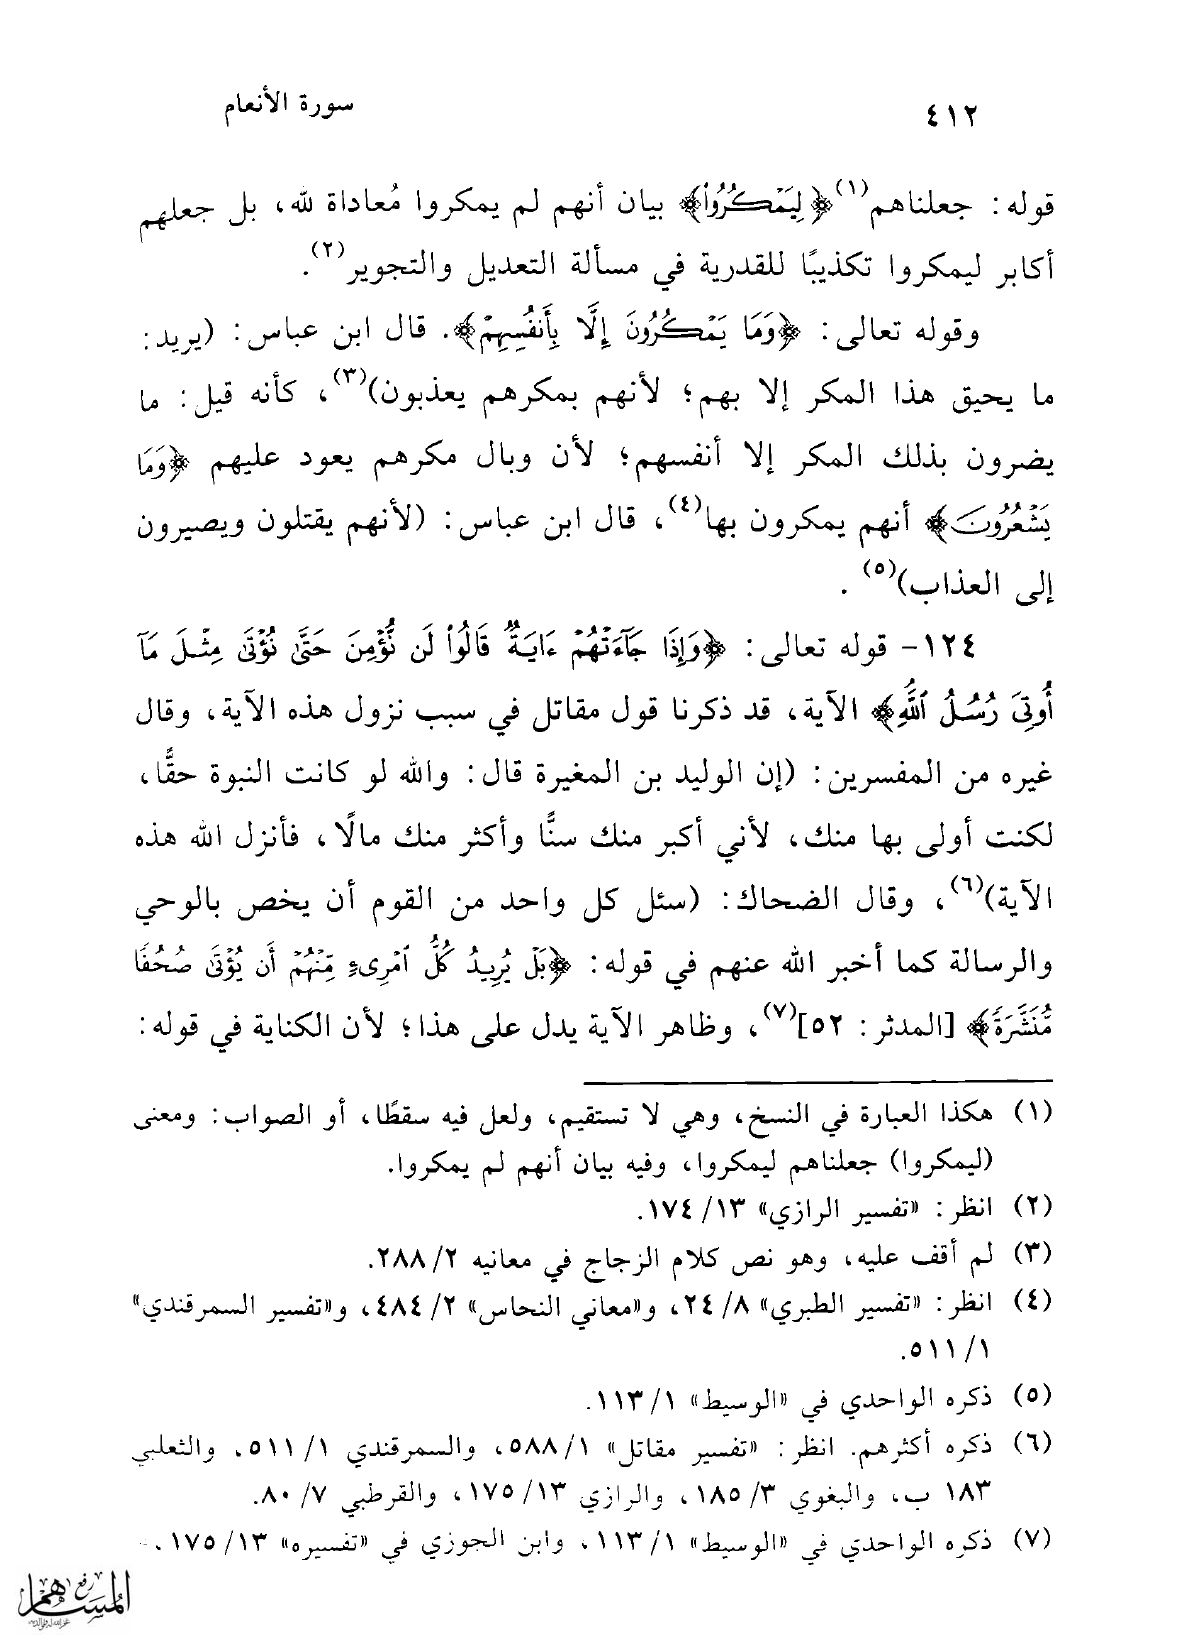 ٤١٢ سورة الأنعام
قوله: جعلناهم(١) ﴿لِيَمْكُرُواْ﴾ بيان أنهم لم يمكروا مُعاداة لله، بل جعلهم
أكابر ليمكروا تكذيبًا للقدرية في مسألة التعديل والتجوير(٢).
وقوله تعالى: ﴿وَمَا يَمْكُرُونَ إِلَّا بِأَنفُسِهِمْ﴾. قال ابن عباس: (يريد:
ما يحيق هذا المكر إلا بهم؛ لأنهم بمكرهم يعذبون)(٣)، كأنه قيل: ما
يضرون بذلك المكر إلا أنفسهم؛ لأن وبال مكرهم يعود عليهم ﴿وَمَا
يَشْعُرُونَ﴾ أنهم يمكرون بها(٤)، قال ابن عباس: (لأنهم يقتلون ويصيرون
إلى العذاب)(٥).
١٢٤- قوله تعالى: ﴿وَإِذَا جَآءَتْهُمْ ءَايَةٌ قَالُواْ لَن نُّؤْمِنَ حَتَّىٰ نُؤْتَىٰ مِثْلَ مَآ
أُوتِىَ رُسُلُ ٱللَّهِ﴾ الآية، قد ذكرنا قول مقاتل في سبب نزول هذه الآية، وقال
غيره من المفسرين: (إن الوليد بن المغيرة قال: والله لو كانت النبوة حقًّا،
لكنت أولى بها منك، لأني أكبر منك سنًّا وأكثر منك مالًا، فأنزل الله هذه
الآية)(٦)، وقال الضحاك: (سئل كل واحد من القوم أن يخص بالوحي
والرسالة كما أخبر الله عنهم في قوله: ﴿بَلْ يُرِيدُ كُلُّ ٱمْرِىءٍ مِّنْهُمْ أَن يُؤْتَىٰ صُحُفًا
مُّنَشَّرَةً﴾ [المدثر: ٥٢](٧)، وظاهر الآية يدل على هذا؛ لأن الكناية في قوله:
(١) هكذا العبارة في النسخ، وهي لا تستقيم، ولعل فيه سقطًا، أو الصواب: ومعنى
(ليمكروا) جعلناهم ليمكروا، وفيه بيان أنهم لم يمكروا.
(٢) انظر: «تفسير الرازي» ١٣/ ١٧٤.
(٣) لم أقف عليه، وهو نص كلام الزجاج في معانيه ٢/ ٢٨٨.
(٤) انظر: «تفسير الطبري» ٨/ ٢٤، و«معاني النحاس» ٢/ ٤٨٤، و«تفسير السمرقندي»
١/ ٥١١.
(٥) ذكره الواحدي في «الوسيط» ١/ ١١٣.
(٦) ذكره أكثرهم. انظر: «تفسير مقاتل» ١/ ٥٨٨، والسمرقندي ١/ ٥١١، والثعلبي
١٨٣ ب، والبغوي ٣/ ١٨٥، والرازي ١٣/ ١٧٥، والقرطبي ٧/ ٨٠.
(٧) ذكره الواحدي في «الوسيط» ١/ ١١٣، وابن الجوزي في «تفسيره» ١٣/ ١٧٥.